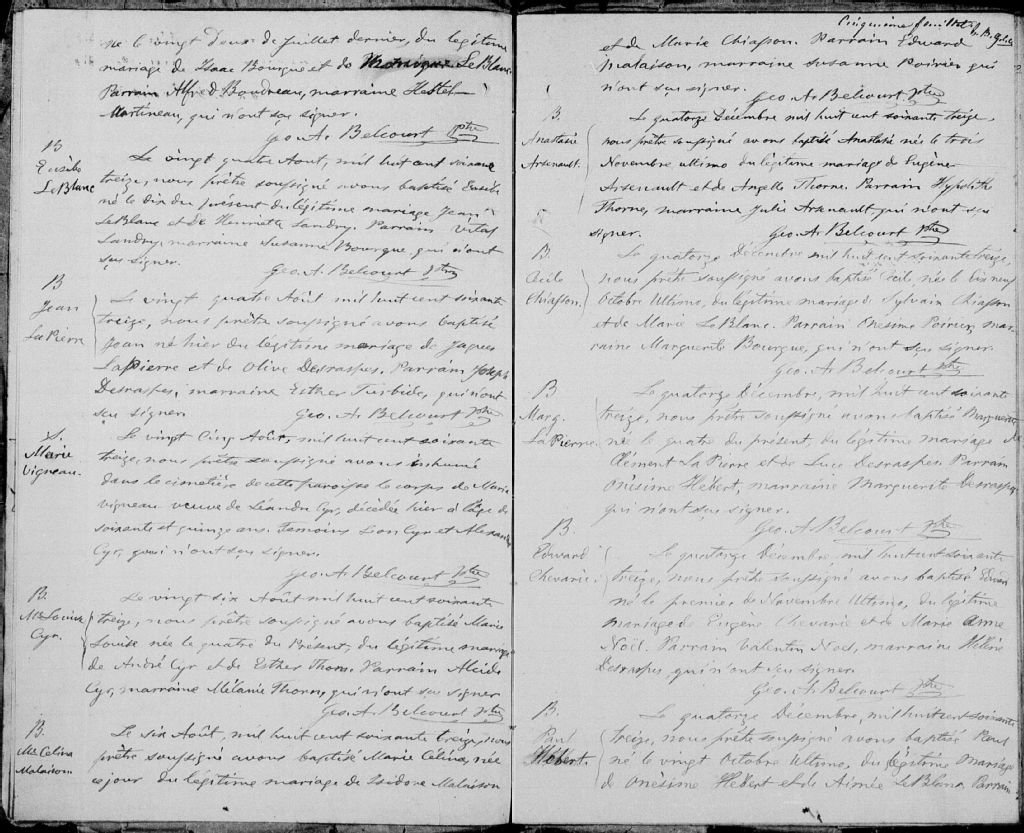 né le vingt Deux de Juillet dernier, du légitime
mariage de Isaac Bourgue et de LeBlanc.
Parrain Alfred Boudreau, marraine
Martineau, qui n'ont su signer.
Geo. A. Belcourt Ptre
B
Eusèbe
LeBlanc
Le vingt quatre Août, mil huit cent soixante
treize, nous prêtre soussigné avons baptisé Eusèbe
né le dix du présent du légitime mariage Jean
LeBlanc et de Henriette Landry. Parrain Vital
Landry, marraine Susanne Bourgue, qui n'ont
su signer.
Geo. A. Belcourt Ptre
B
Jean
LaPierre
Le vingt quatre Août mil huit cent soixante
treize, nous prêtre soussigné avons baptisé
Jean né hier du légitime mariage de Jaques
LaPierre et de Olive Desraspes. Parrain Joseph
Desraspes, marraine Esther Turbide, qui n'ont
su signer. Geo. A. Belcourt Ptre
S.
Marie
Vigneau.
Le vingt Cinq Août, mil huit cent soixante
treize, nous prêtre soussigné avons inhumé
dans le cimetière de cette paroisse le corps de Marie
Vigneau veuve de Léandre Cyr, décédée hier à l'âge de
soixante et quinze ans. Temoins Leon Cyr et Alexandre
Cyr, qui n'ont su signer.
Geo. A. Belcourt Ptre
B.
Me Louise
Cyr.
Le vingt six Août mil huit cent soixante
treize, nous prêtre soussigné avons baptisé Marie
Louise née le quatre du Présent, du légitime mariage
de André Cyr et de Esther Thorne. Parrain Alcide
Cyr, marraine Mélanie Thorne, qui n'ont su signer
Geo. A. Belcourt Ptre
B.
Me Célina
Malaison
Le six Août, mil huit cent soixante treize, nous
prêtre soussigné avons baptisé Marie Célina, née
ce jour du légitime mariage de Isidore Malaison
Cinquième feuillet
et de Marie Chiasson. Parrain Edward
Malaison, marraine Susanne Poirier qui
n'ont su signer.
Geo. A. Belcourt Ptre
B.
Anastasie
Arsenault.
Le quatorze Décembre mil huit cent soixante treize,
nous prêtre soussigné avons baptisé Anastasie née le trois
Novembre ultimo du légitime mariage de Eugène
Arsenault et de Angelle Thorne. Parrain Hypolithe
Thorne, marraine Julie Arsenault, qui n'ont su
signer. Geo. A. Belcourt Ptre
B.
Cécile
Chiasson.
Le quatorze Décembre mil huit cent soixante treize,
nous prêtre soussigné avons baptisé Cécile, née le dix neuf
Octobre Ultimo, du légitime mariage de Sylvain Chiasson
et de Marie LeBlanc. Parrain Onesime Poirier, mar-
raine Marguerite Bourgue, qui n'ont su signer.
Geo. A. Belcourt Ptre
B
Marg.
LaPierre.
Le quatorze Décembre, mil huit cent soixante
treize, nous prêtre soussigné avons baptisé Marguerite
né le quatre du présent, du légitime mariage de
Clément LaPierre et de Luce Desraspes. Parrain
Onésime Hébert, marraine Marguerite Desraspes,
qui n'ont su signer.
Geo. A. Belcourt Ptre
B.
Edward
Chevarie.
Le quatorze Décembre, mil huit cent soixante
treize, nous prêtre soussigné avons baptisé Edward
né le premier de Novembre Ultimo, du légitime
mariage de Eugène Chevarie et de Marie Anne
Noël. Parrain Valentin Noël, marraine Hélène
Desraspes, qui n'ont su signer.
Geo. A. Belcourt Ptre
B.
Paul
Hébert.
Le quatorze Décembre, mil huit cent soixante
treize, nous prêtre soussigné avons baptisé Paul
né le vingt Octobre Ultimo, du légitime mariage
de Onésime Hébert et de Aimée LeBlanc, Parrain